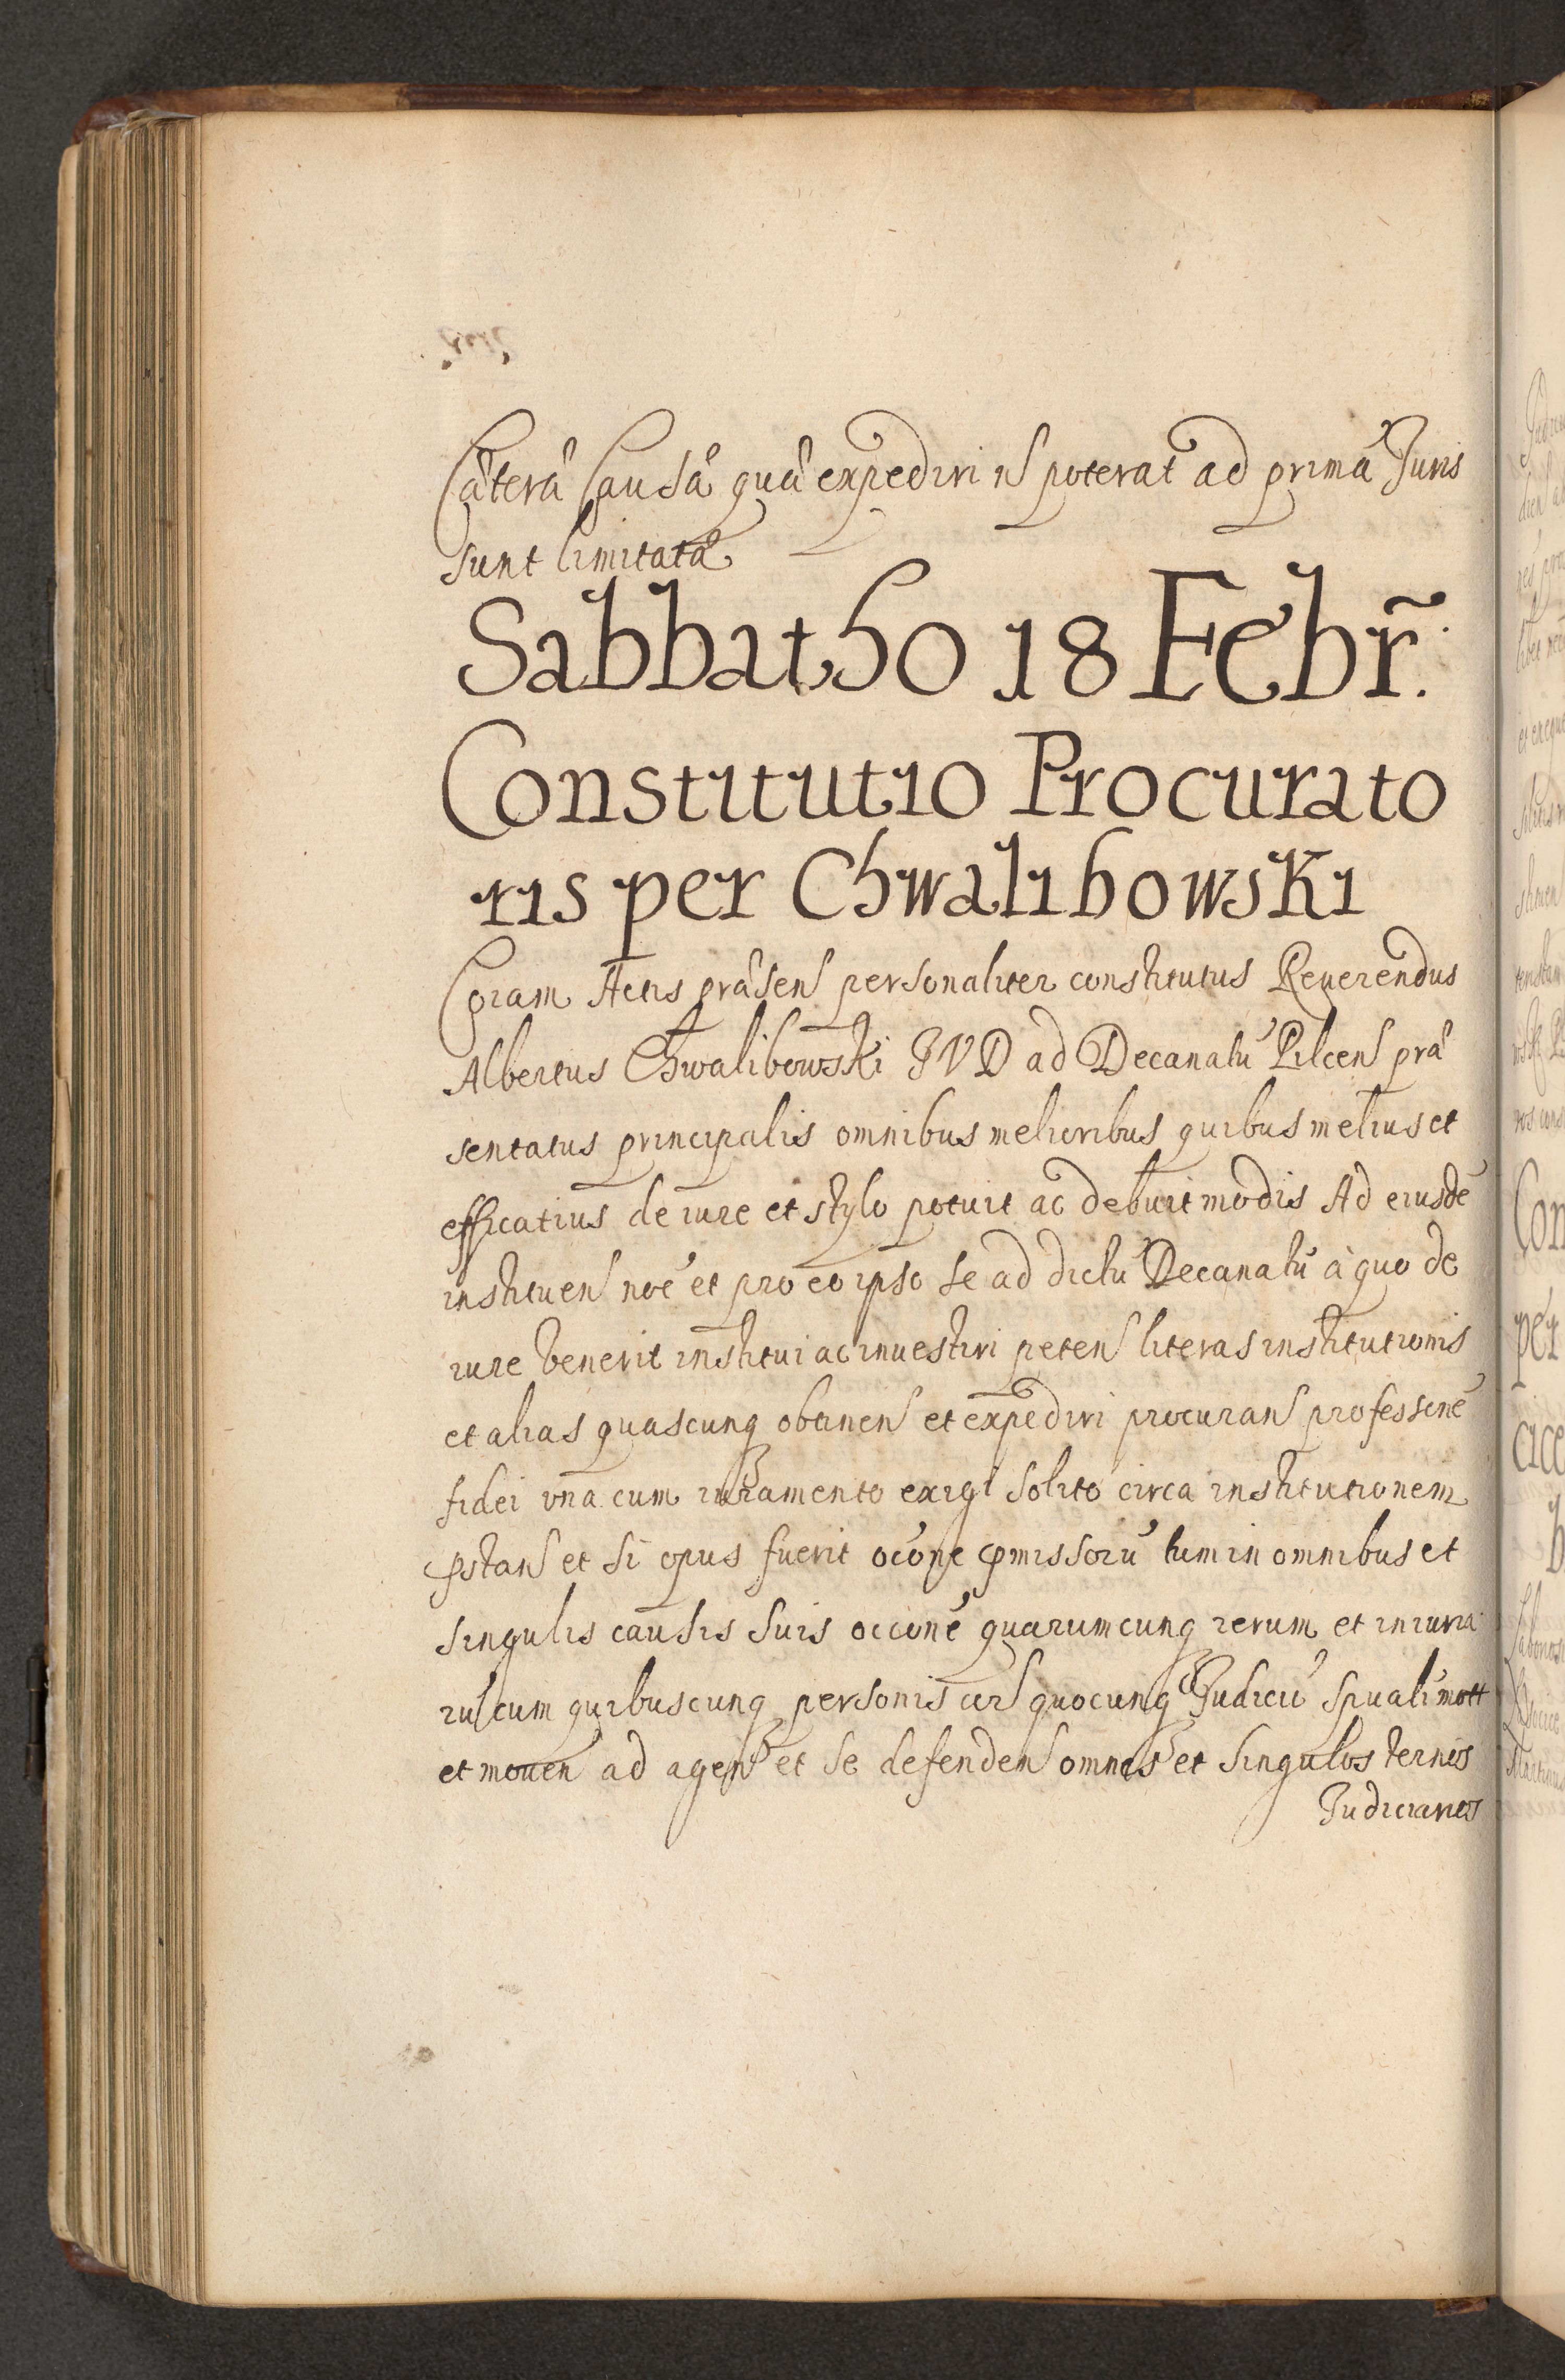 Cæteræ Causæ quæ expediri n poterāt ad primā Juris
sunt limitatæ
Sabbatho 18 Febr̃.
Constitutio Procurato
ris per Chwalibowski
Coram Actis præsen personaliter constitutus Reuerendus
Albertus Chwalibowski JVD ad Decanatū Pilcen præ
sentatus principalis omnibus melioribus quibus melius et
efficatius de iure et stylo potuit ac debuit modis Ad eiusdē
instituen noē et pro eo ipso se ad dictū Decanatū à quo de
iure venerit institui ac inuestiri peten literas institutionis
et alias quascunq obtinen et expediri procuran professionē
fidei vna cum iuramento exigi solito circa institutionem
pstan et si opus fuerit oc̄one pmissorū tum in omnibus et
singulis causis suis occonē quarumcunq rerum et iniuria
ru cum quibuscunq personis cor quocunq Judicio spuali mott
et mouen ad agen et se defenden omnes et singulos ternos
Judiciarios